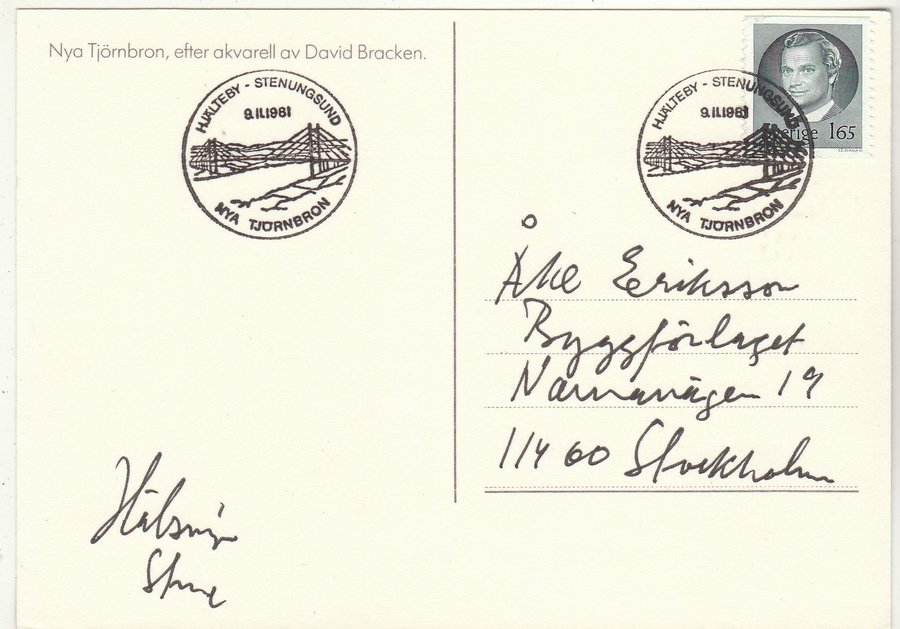 Nya Tjörnbron, efter akvarell av David Bracken.
HJÄLTEBY - STENUNGSUND
9.11.1981
NYA TJÖRNBRON
HJÄLTEBY - STENUNGSUND
9.11.1981
NYA TJÖRNBRON
Sverige 165
Åke Eriksson
Byggförlaget
Narvavägen 19
114 60 Stockholm
Hälsn